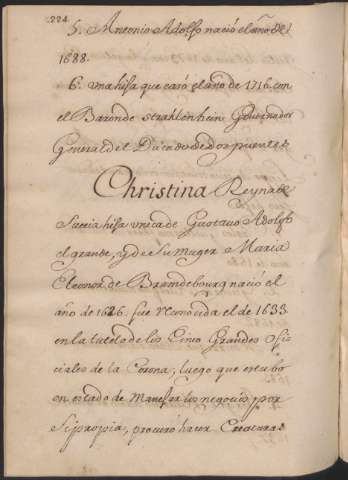 224.
5. Antonio Adolfo nació el año de
1688.
6. una hija que casó el año de 1716. con
el Baron de Strahlenhein Gouvernador
General del Ducado de dos puentes.
Christina Reyna de
Suecia hija unica de Gustavo Adolfo
el grande, y de su muger Maria
Eleonor de Bramdebourg nació el
año de 1626. fue reconocida el de 1633
en la tutela de los Cinco Grandes Ofi
ciales de la Corona, luego que estubo
en estado de manejar los negocios por
si propia, procuró hacer Criaturas